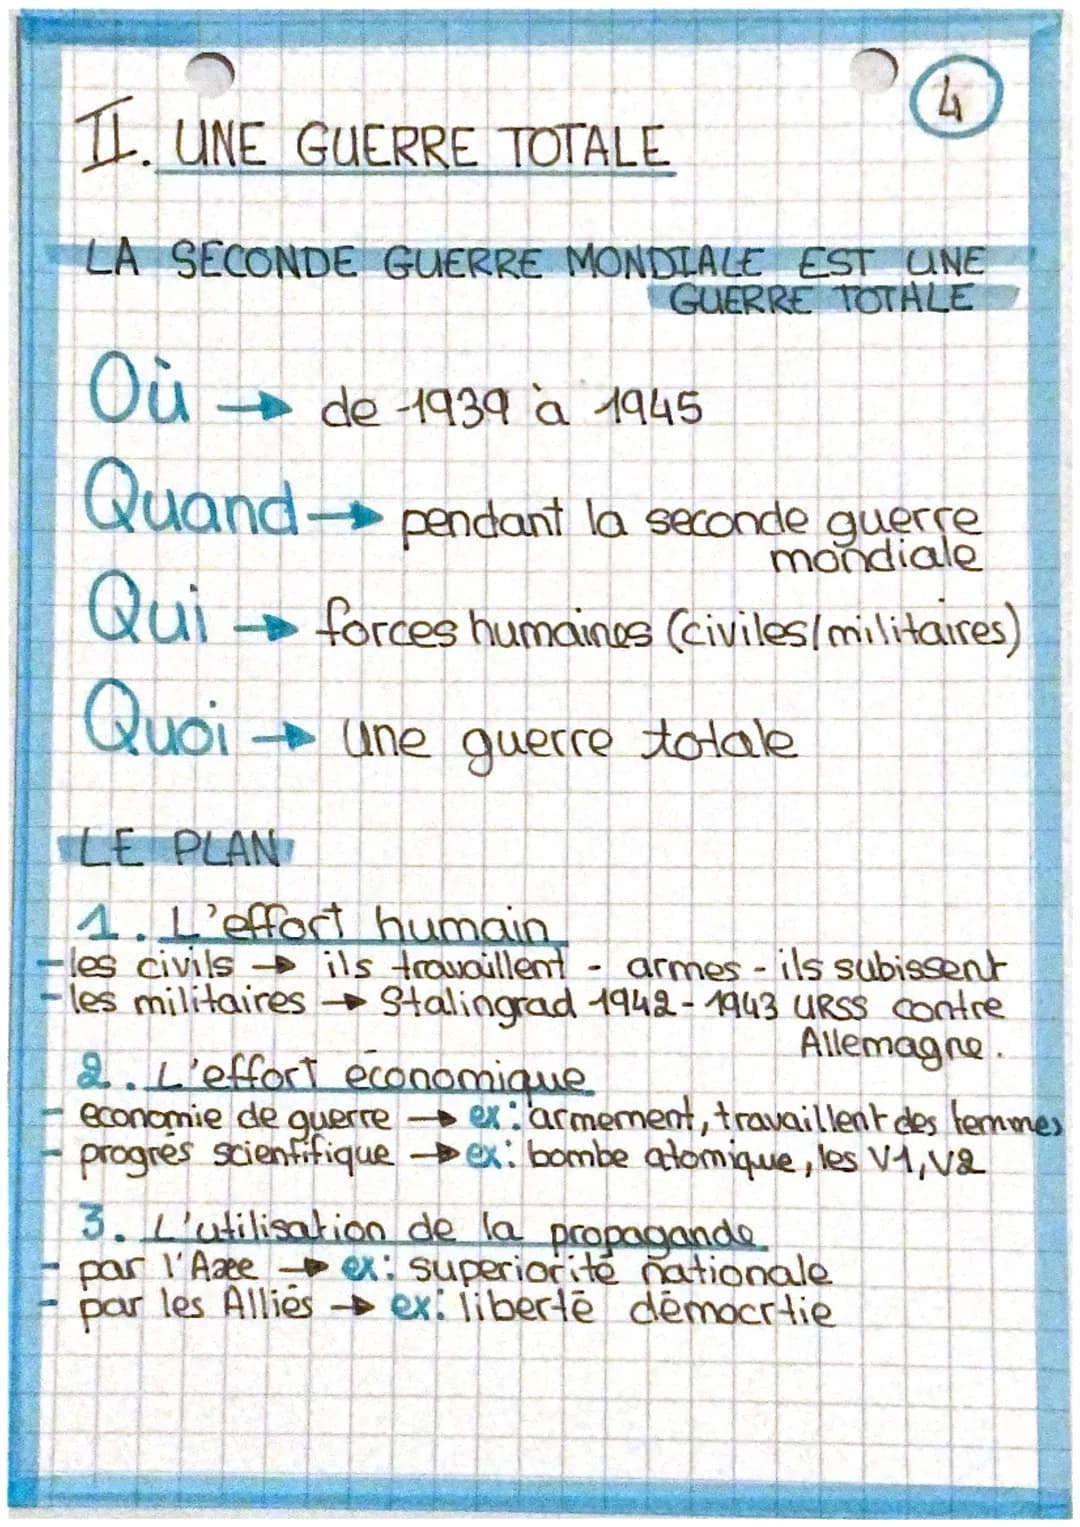 4
II. UNE GUERRE TOTALE
LA SECONDE GUERRE MONDIALE EST UNE
GUERRE TOTALE
Où → de 1939 à 1945
Quand → pendant la seconde guerre
mondiale
Qui → forces humaines (civiles/militaires)
Quoi → une guerre totale
LE PLAN
1. L'effort humain
- les civils → ils travaillent - armes - ils subissent
- les militaires → Stalingrad 1942-1943 URSS contre
Allemagne.
2. L'effort économique
- economie de guerre → ex: armement, travaillent des femmes
- progrès scientifique → ex: bombe atomique, les V1, V2
3. L'utilisation de la propagande
- par l'Axe → ex: superiorité nationale
- par les Alliés → ex: liberté démocrtie